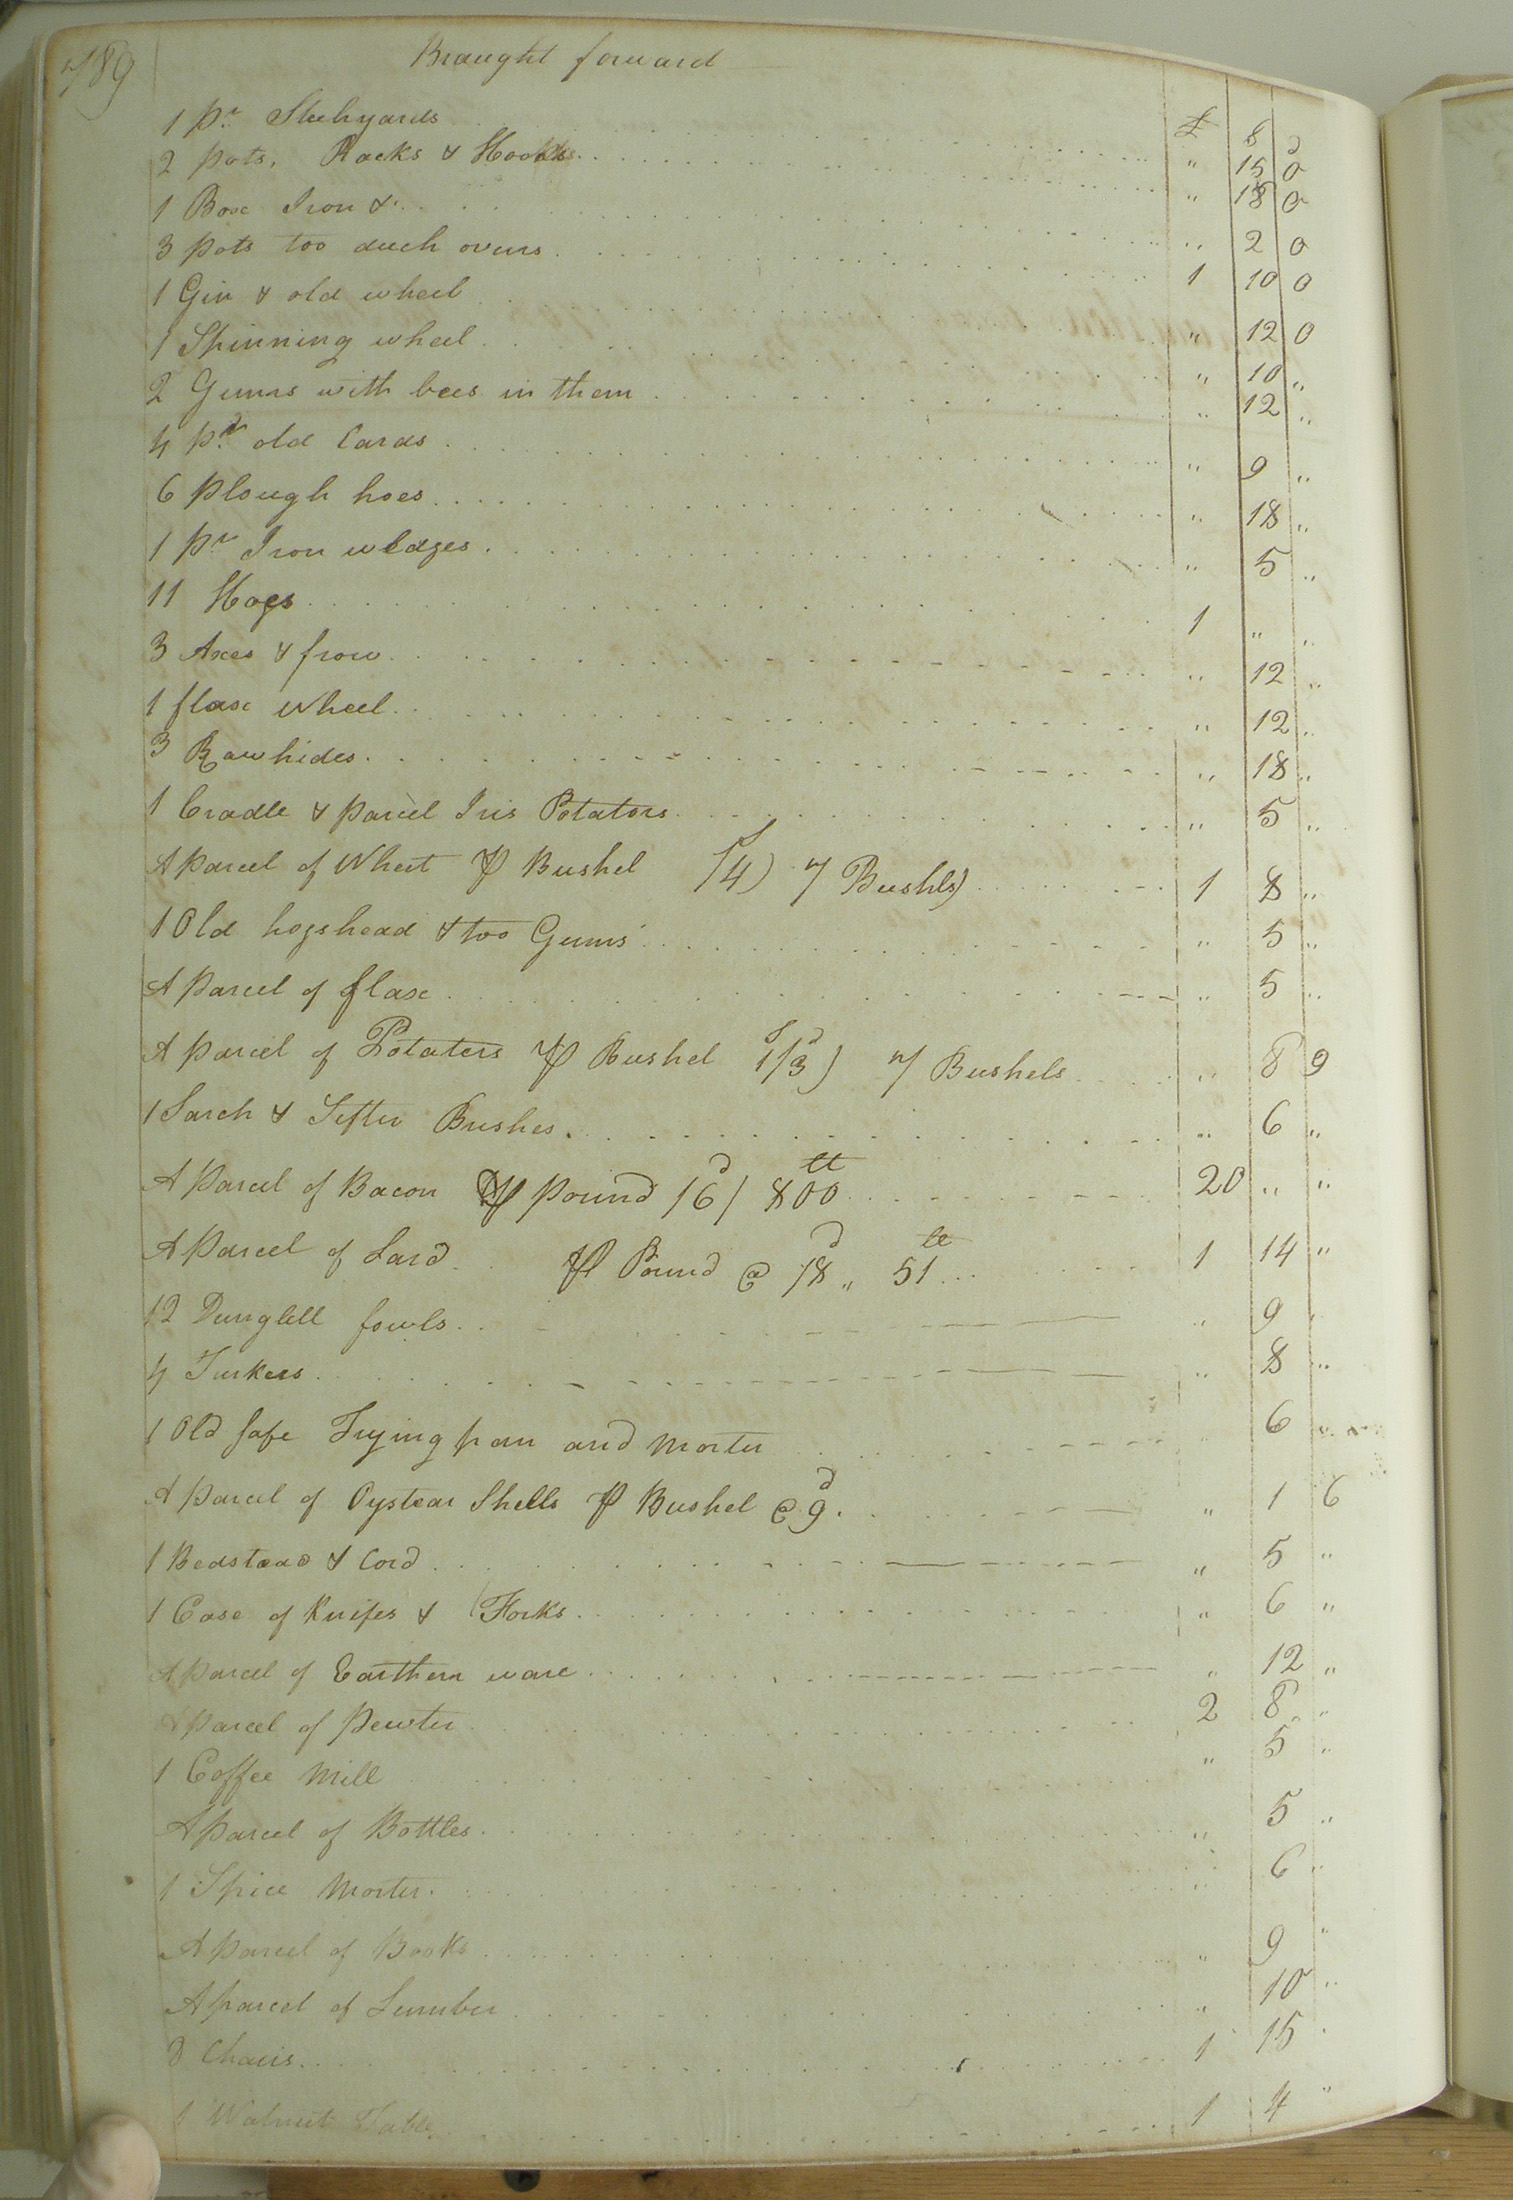 789
Braught forward
£ s d
1 pr Steelyards . . . " 15 0
2 pots, Racks & Hooks . . . " 18 0
1 Box Iron & . . . " 2 0
3 pots too duch ovens . . . 1 10 0
1 Gin & old wheel . . . " 12 0
1 Spinning wheel . . . " 10 "
2 Gums with bees in them . . . " 12 "
4 pr old Cards . . . " 9 "
6 plough hoes . . . " 18 "
1 pr Iron wedges . . . " 5 "
11 Hogs . . . 1 " "
3 Axes & frow . . . " 12 "
1 flax Wheel . . . " 12 "
3 Rawhides . . . " 18 "
1 Cradle & parcel Iris Potators . . . " 5 "
A Parcel of Wheat ⅌ Bushel /4) 7 Bushls) . . . 1 8 "
1 Old hogshead & too Gums . . . " 5 "
A Parcel of flax . . . " 5 "
A parcel of Potaters ⅌ Bushel 1/3) 7 Bushels . . . " 8 9
1 Sarch & Sifter Bushes . . . " 6 "
A Parcel of Bacon ⅌ pound /6/ 800 . . . 20 " "
A Parcel of Lard . . ⅌ Pound @ /8 " 51 . . . 1 14 "
12 Dunglell fowls . . . " 9 "
4 Turkers . . . " 8 "
1 Old Safe Frying pan and Morter . . . 6 "
A Parcel of Oystear Shells ⅌ Bushel @ 9d . . . " 1 6
1 Bedstead & Cord . . . " 5 "
1 Case of Knifes & Forks . . . " 6 "
A Parcel of Earthern ware . . . " 12 "
A Parcel of Pewter . . . 2 8 "
1 Coffee Mill . . . " 5 "
A Parcel of Bottles . . . " 5 "
1 Spice Morter . . . " 6 "
A Parcel of Books . . . " 9 "
A parcel of Lumber . . . " 10 "
Chairs . . . 1 15 "
1 Walnut Table . . . 1 4 "